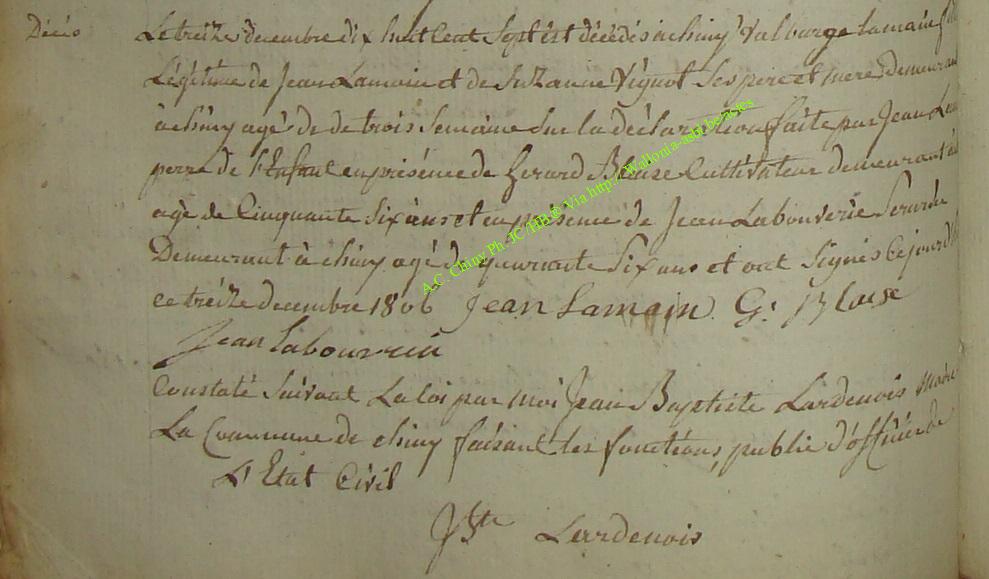 Décés
Le treize decembre dix huit Cent Sept est décédés a chiny Valburge Lamain
Légitime de Jean Lamain et de Suzanne Vignot Ses pere et mere demeurant
a chiny agé de de trois Semaine Sur la déclaration faite par Jean
perre de l'Enfant en présence de Gerard Blaise Cultivateur demeurant
agé de Cinquante Six ans et en présence de Jean Labouverie
Demeurant à chiny agé de quarante Six ans et ont Signés Ce jourd
ce treize decembre 1806 Jean Lamain G: Blaise
Jean Labouverie
Constaté Suivant La loi par moi Jean Baptiste Lardenois Maire
La Commune de chiny faisant les fonctions public d'officier de
L'Etat Civil
JBte Lardenois
A.C. Chiny Ph. JC HB @ Via http://Wallonia-asbl.be/actes